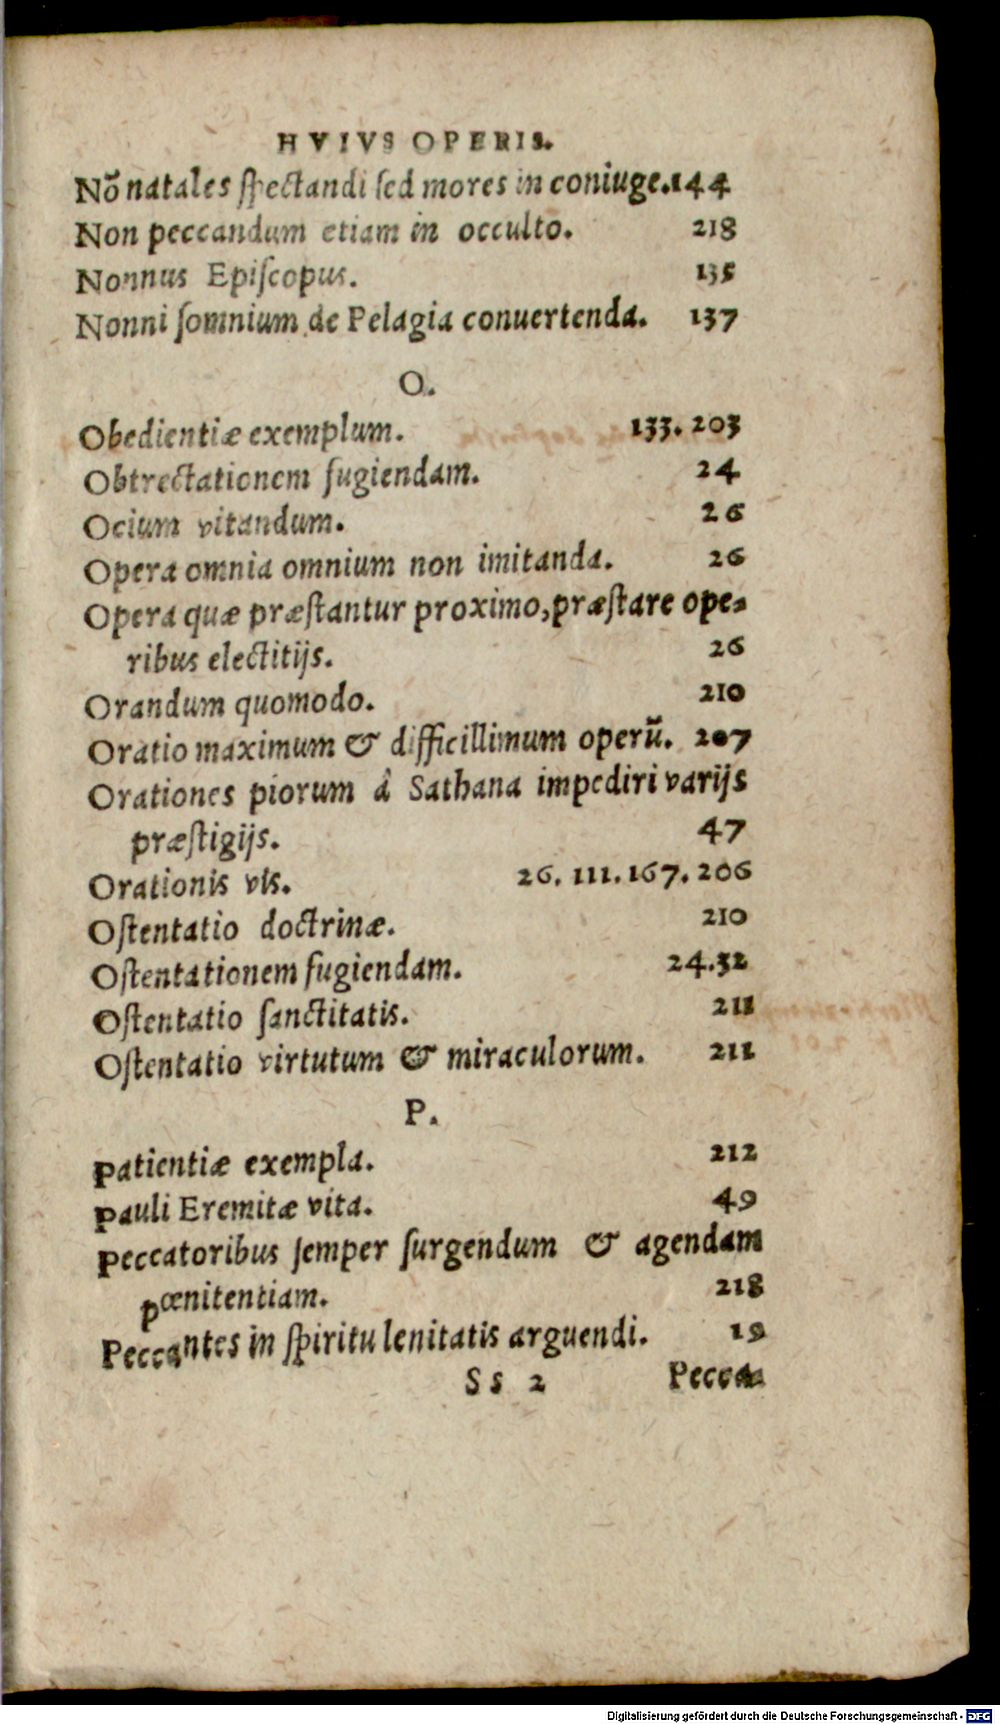 HVIVS OPERIS.
Nõ natales spectandi sed mores in coniuge. 144
Non peccandum etiam in occulto. 218
Nonnus Episcopus. 135
Nonni somnium de Pelagia conuertenda. 137
O.
Obedientiæ exemplum. 133. 203
Obtrectationem fugiendam. 24
Ocium vitandum. 26
Opera omnia omnium non imitanda. 26
Opera quæ præstantur proximo, præstare ope-
ribus electitijs. 26
Orandum quomodo. 210
Oratio maximum & difficillimum operũ. 207
Orationes piorum â Sathana impediri varijs
præstigijs. 47
Orationis vis. 26. 111. 167. 206
Ostentatio doctrinæ. 210
Ostentationem fugiendam. 24. 32
Ostentatio sanctitatis. 211
Ostentatio virtutum & miraculorum. 211
P.
Patientiæ exempla. 212
Pauli Eremitæ vita. 49
Peccatoribus semper surgendum & agendam
pœnitentiam. 218
Peccantes in spiritu lenitatis arguendi. 19
Ss 2 Pecca-
Digitalisierung gefördert durch die Deutsche Forschungsgemeinschaft - DFG